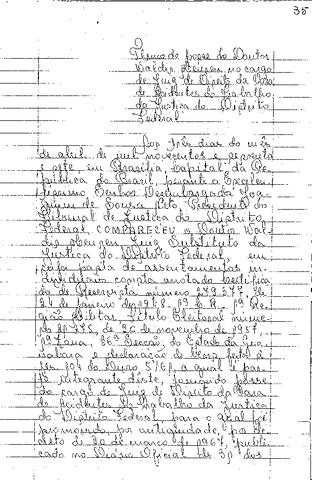 35
Termo de posse do Doutor
Waldir Meuren no cargo
de Juiz de Direito da Vara
de Acidentes do Trabalho
da Justiça do Distrito
Federal
Aos três dias do mês
de abril de mil novecentos e sessenta
e sete em Brasília, Capital da Re-
pública do Brasil, perante o Excelen-
tíssimo Senhor Desembargador
de Sousa Neto, Presidente do
Tribunal de Justiça do Distrito
Federal, COMPARECEU o Doutor Wal-
dir Meuren Juiz Substituto da
Justiça do Distrito Federal, em
cuja pasta de assentamentos in-
dividuais consta anotado Certifica-
do de Reservista número 279.377, de
24 de janeiro de 1948, 1ª C.R., 1ª Re-
gião Militar, Título Eleitoral núme-
ro de 20 de novembro de 1957,
1ª Zona, Secção, do Estado da Gua-
nabara e declaração de bens feita à
fls. 104 do livro a qual é par-
te integrante deste, tomou posse
do cargo de Juiz de Direito da Vara
de Acidentes do Trabalho da Justiça
do Distrito Federal para o qual foi
promovido, por antiguidade, por de-
creto de 30 de março de 1967, publi-
cado no Diário Oficial de 31 dos